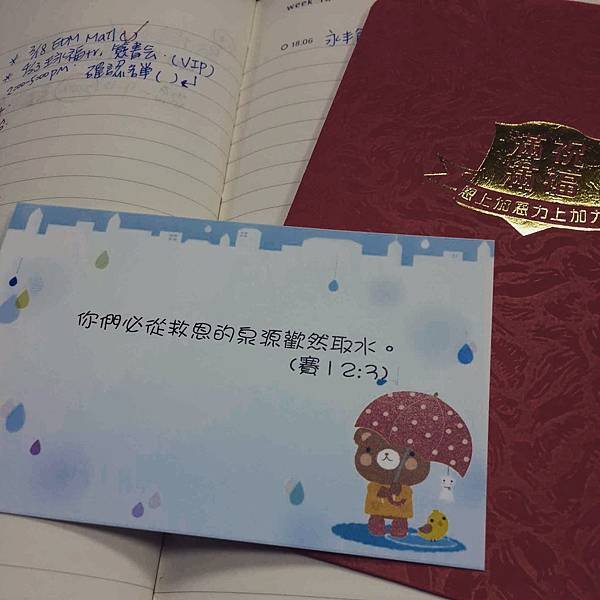 * 3/8 EDM Mail
(VIP)
2:00-5:00pm. 確認名單 ( )
week
18.06 永丰
滿祝
滿福
恩上加恩力上加力
你們必從救恩的泉源歡然取水。
(賽12:3)